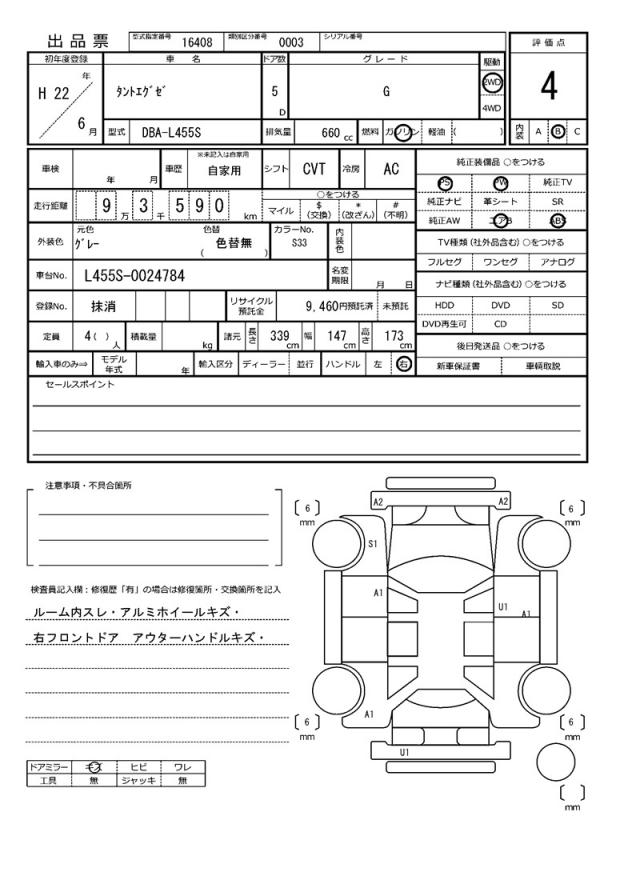 出品票 型式指定番号 16408 類別区分番号 0003 シリアル番号
評価点
4
内装 A B C
初年度登録 車名 ドア数 グレード 駆動
H 22 年 6 月
ﾀﾝﾄｴｸﾞｾﾞ
5 D
G
2WD
4WD
型式 DBA-L455S 排気量 660 cc 燃料 ガソリン 軽油 ( )
車検 年 月 車歴 ※未記入は自家用 自家用 シフト CVT 冷房 AC
走行距離 9 万 3 千 5 9 0 km
○をつける
マイル $(交換) *(改ざん) #(不明)
外装色 元色 ｸﾞﾚｰ 色替 ( 色替無 ) カラーNo. S33 内装色
車台No. L455S-0024784 名変期限 月 日
登録No. 抹消 リサイクル預託金 9,460円預託済 未預託
定員 4 ( ) 人 積載量 kg 諸元 長さ 339 cm 幅 147 cm 高さ 173 cm
輸入車のみ⇒ モデル年式 年 輸入区分 ディーラー 並行 ハンドル 左 右
純正装備品 ○をつける
PS PW 純正TV
純正ナビ 革シート SR
純正AW エアB ABS
TV種類(社外品含む) ○をつける
フルセグ ワンセグ アナログ
ナビ種類(社外品含む) ○をつける
HDD DVD SD
DVD再生可 CD
後日発送品 ○をつける
新車保証書 車輌取説
セールスポイント
注意事項・不具合箇所
検査員記入欄：修復歴「有」の場合は修復箇所・交換箇所を記入
ルーム内スレ・アルミホイールキズ・
右フロントドア　アウターハンドルキズ・
ドアミラー キズ ヒビ ワレ
工具 無 ジャッキ 無
A2 A2
[ 6 ] mm
[ 6 ] mm
S1
A1
U1
A1
A1
[ 6 ] mm
[ 6 ] mm
U1
[ ] mm